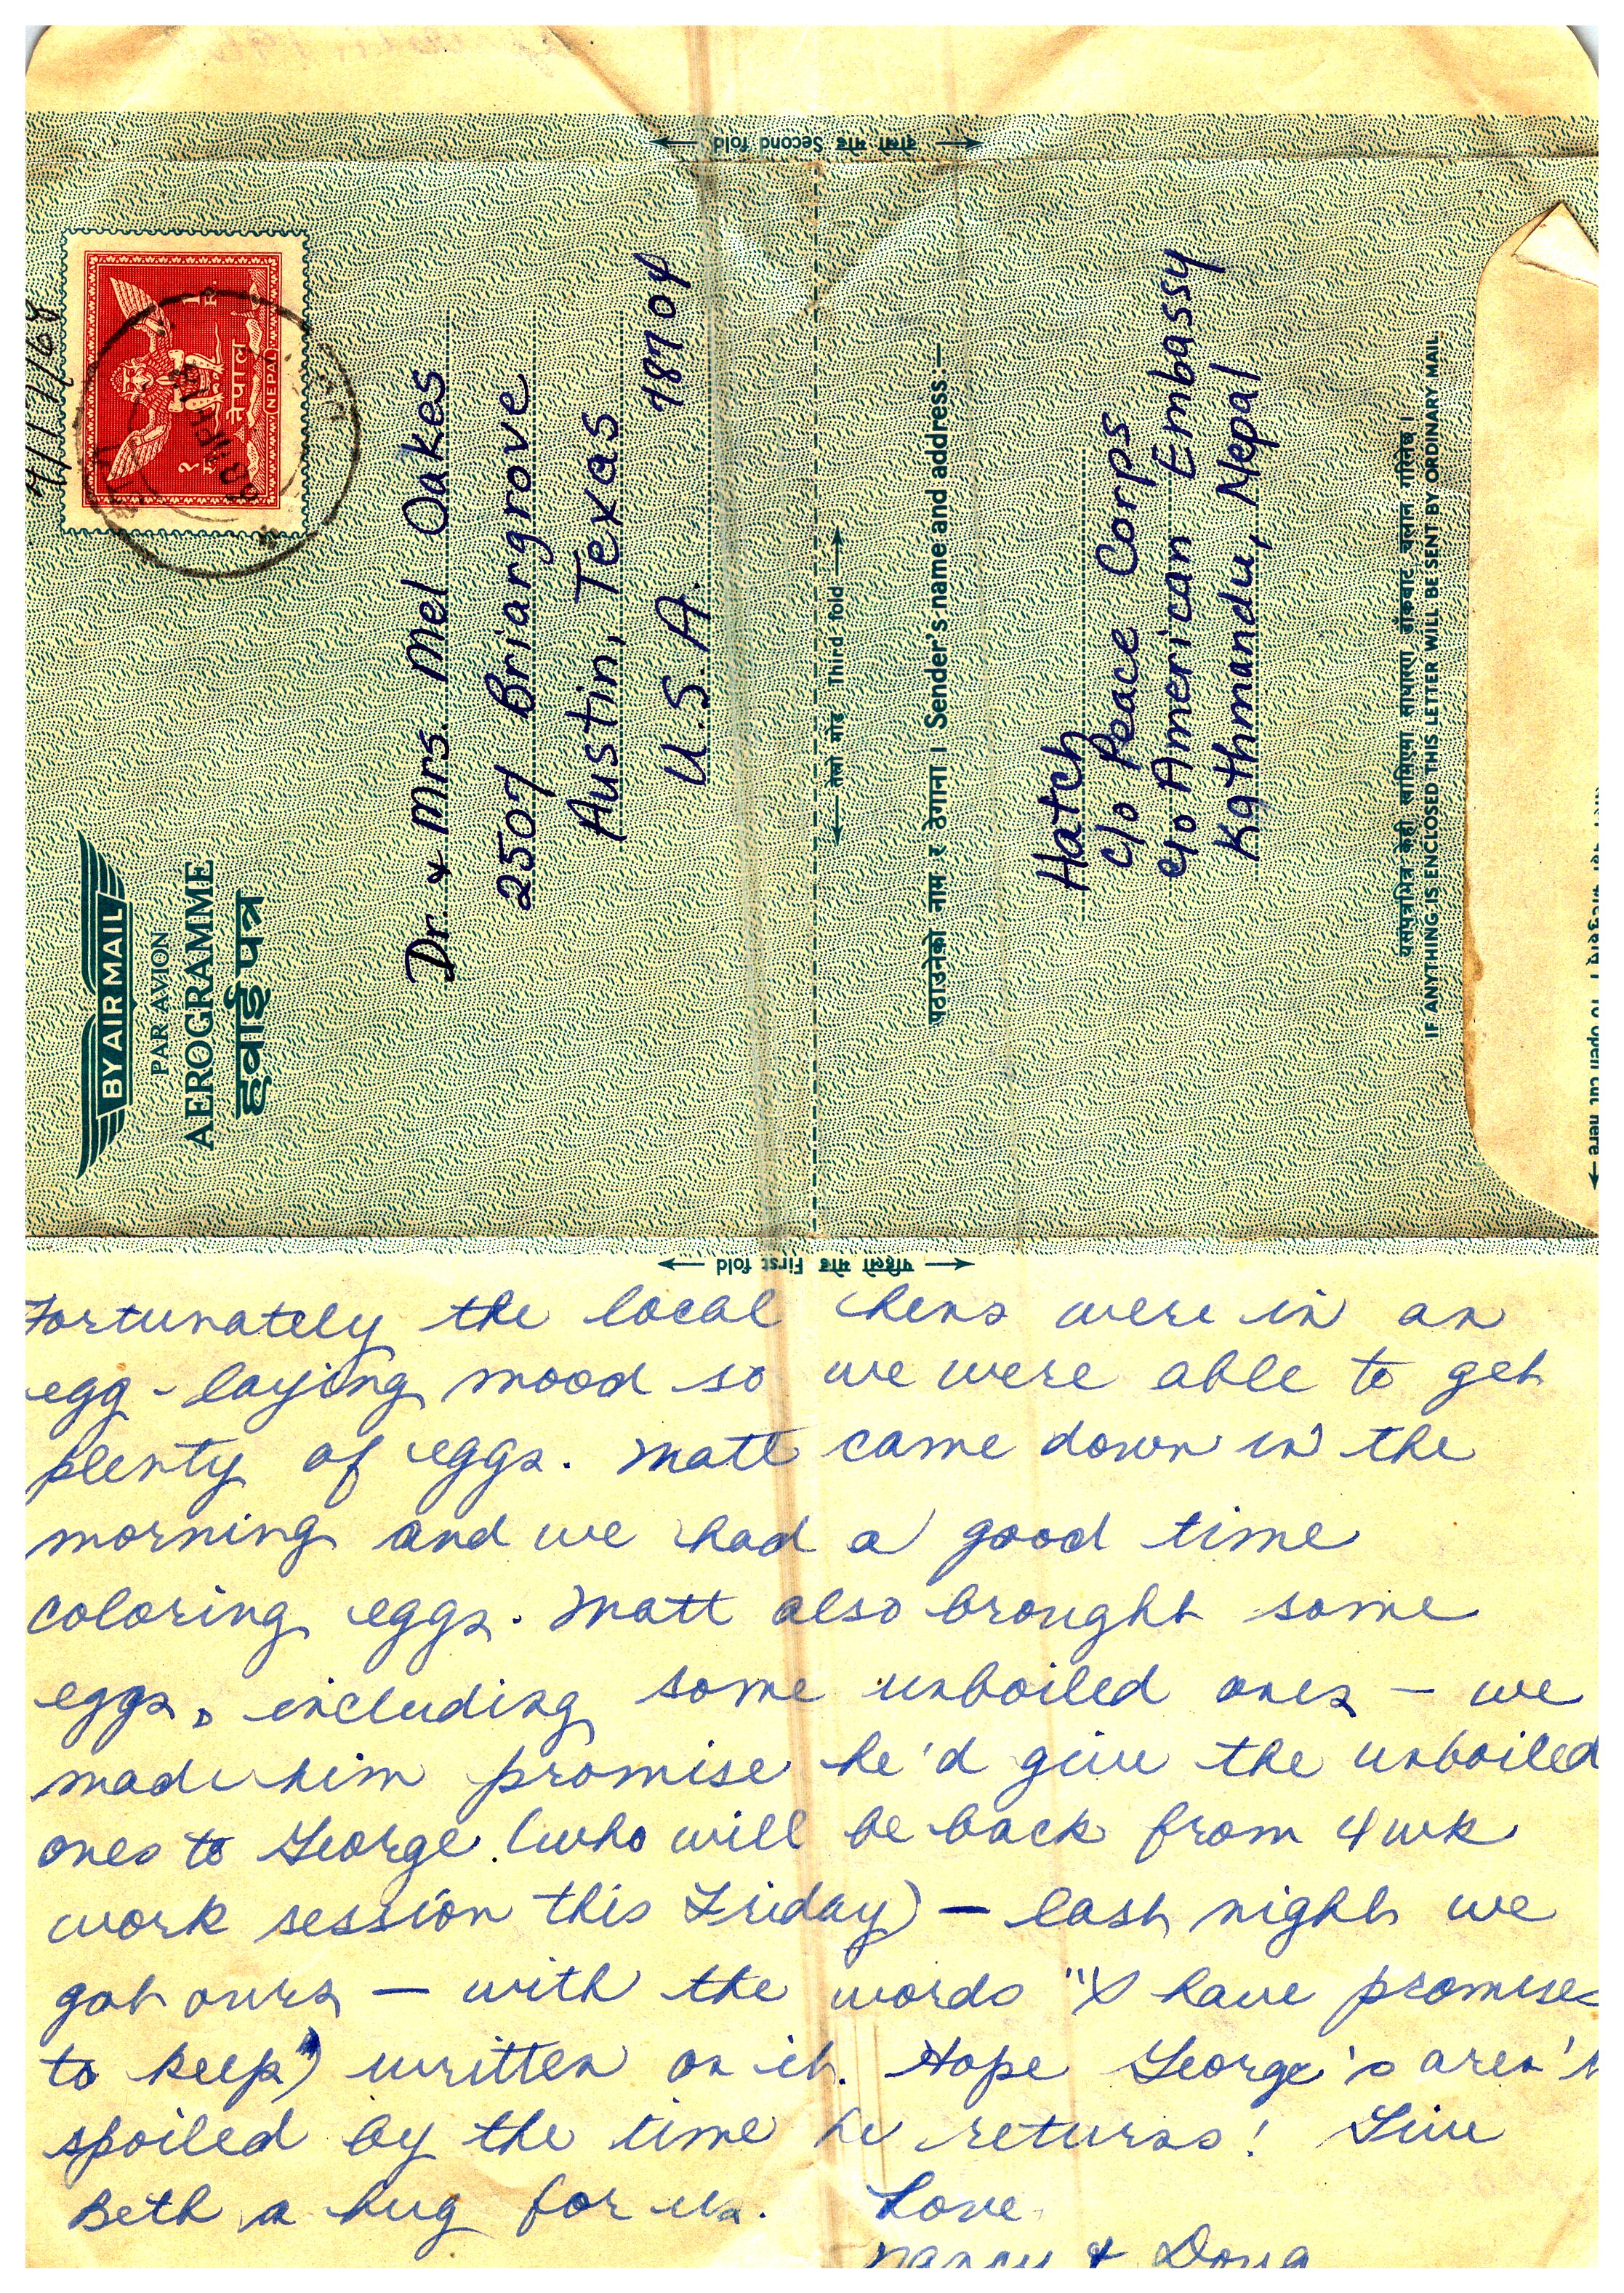 दोस्रो मोड Second fold
4/17/68
नेपाल
(NEPAL)
१ रु.
1 R.
BY AIR MAIL
PAR AVION
AEROGRAMME
हवाई पत्र
Dr. & Mrs. Mel Oakes
2507 Briargrove
Austin, Texas 78704
U.S.A.
तेस्रो मोड Third fold
पठाउनेको नाम र ठेगाना । Sender's name and address:—
Hatch
c/o Peace Corps
c/o American Embassy
Kathmandu, Nepal
यसपत्रभित्र केही राखिएमा साधारण डाँकबाट चलान गरिनेछ ।
IF ANYTHING IS ENCLOSED THIS LETTER WILL BE SENT BY ORDINARY MAIL.
To open cut here
पहिलो मोड First fold
Fortunately the local hens were in an
egg-laying mood so we were able to get
plenty of eggs. Matt came down in the
morning and we had a good time
coloring eggs. Matt also brought some
eggs, including some unboiled ones – we
made him promise he'd give the unboiled
ones to George (who will be back from 4 wk
work session this Friday) – last night we
got ours – with the words "I have promises
to keep") written on it. Hope George's aren't
spoiled by the time he returns! Give
Beth a hug for us. Love
Nancy & Doug